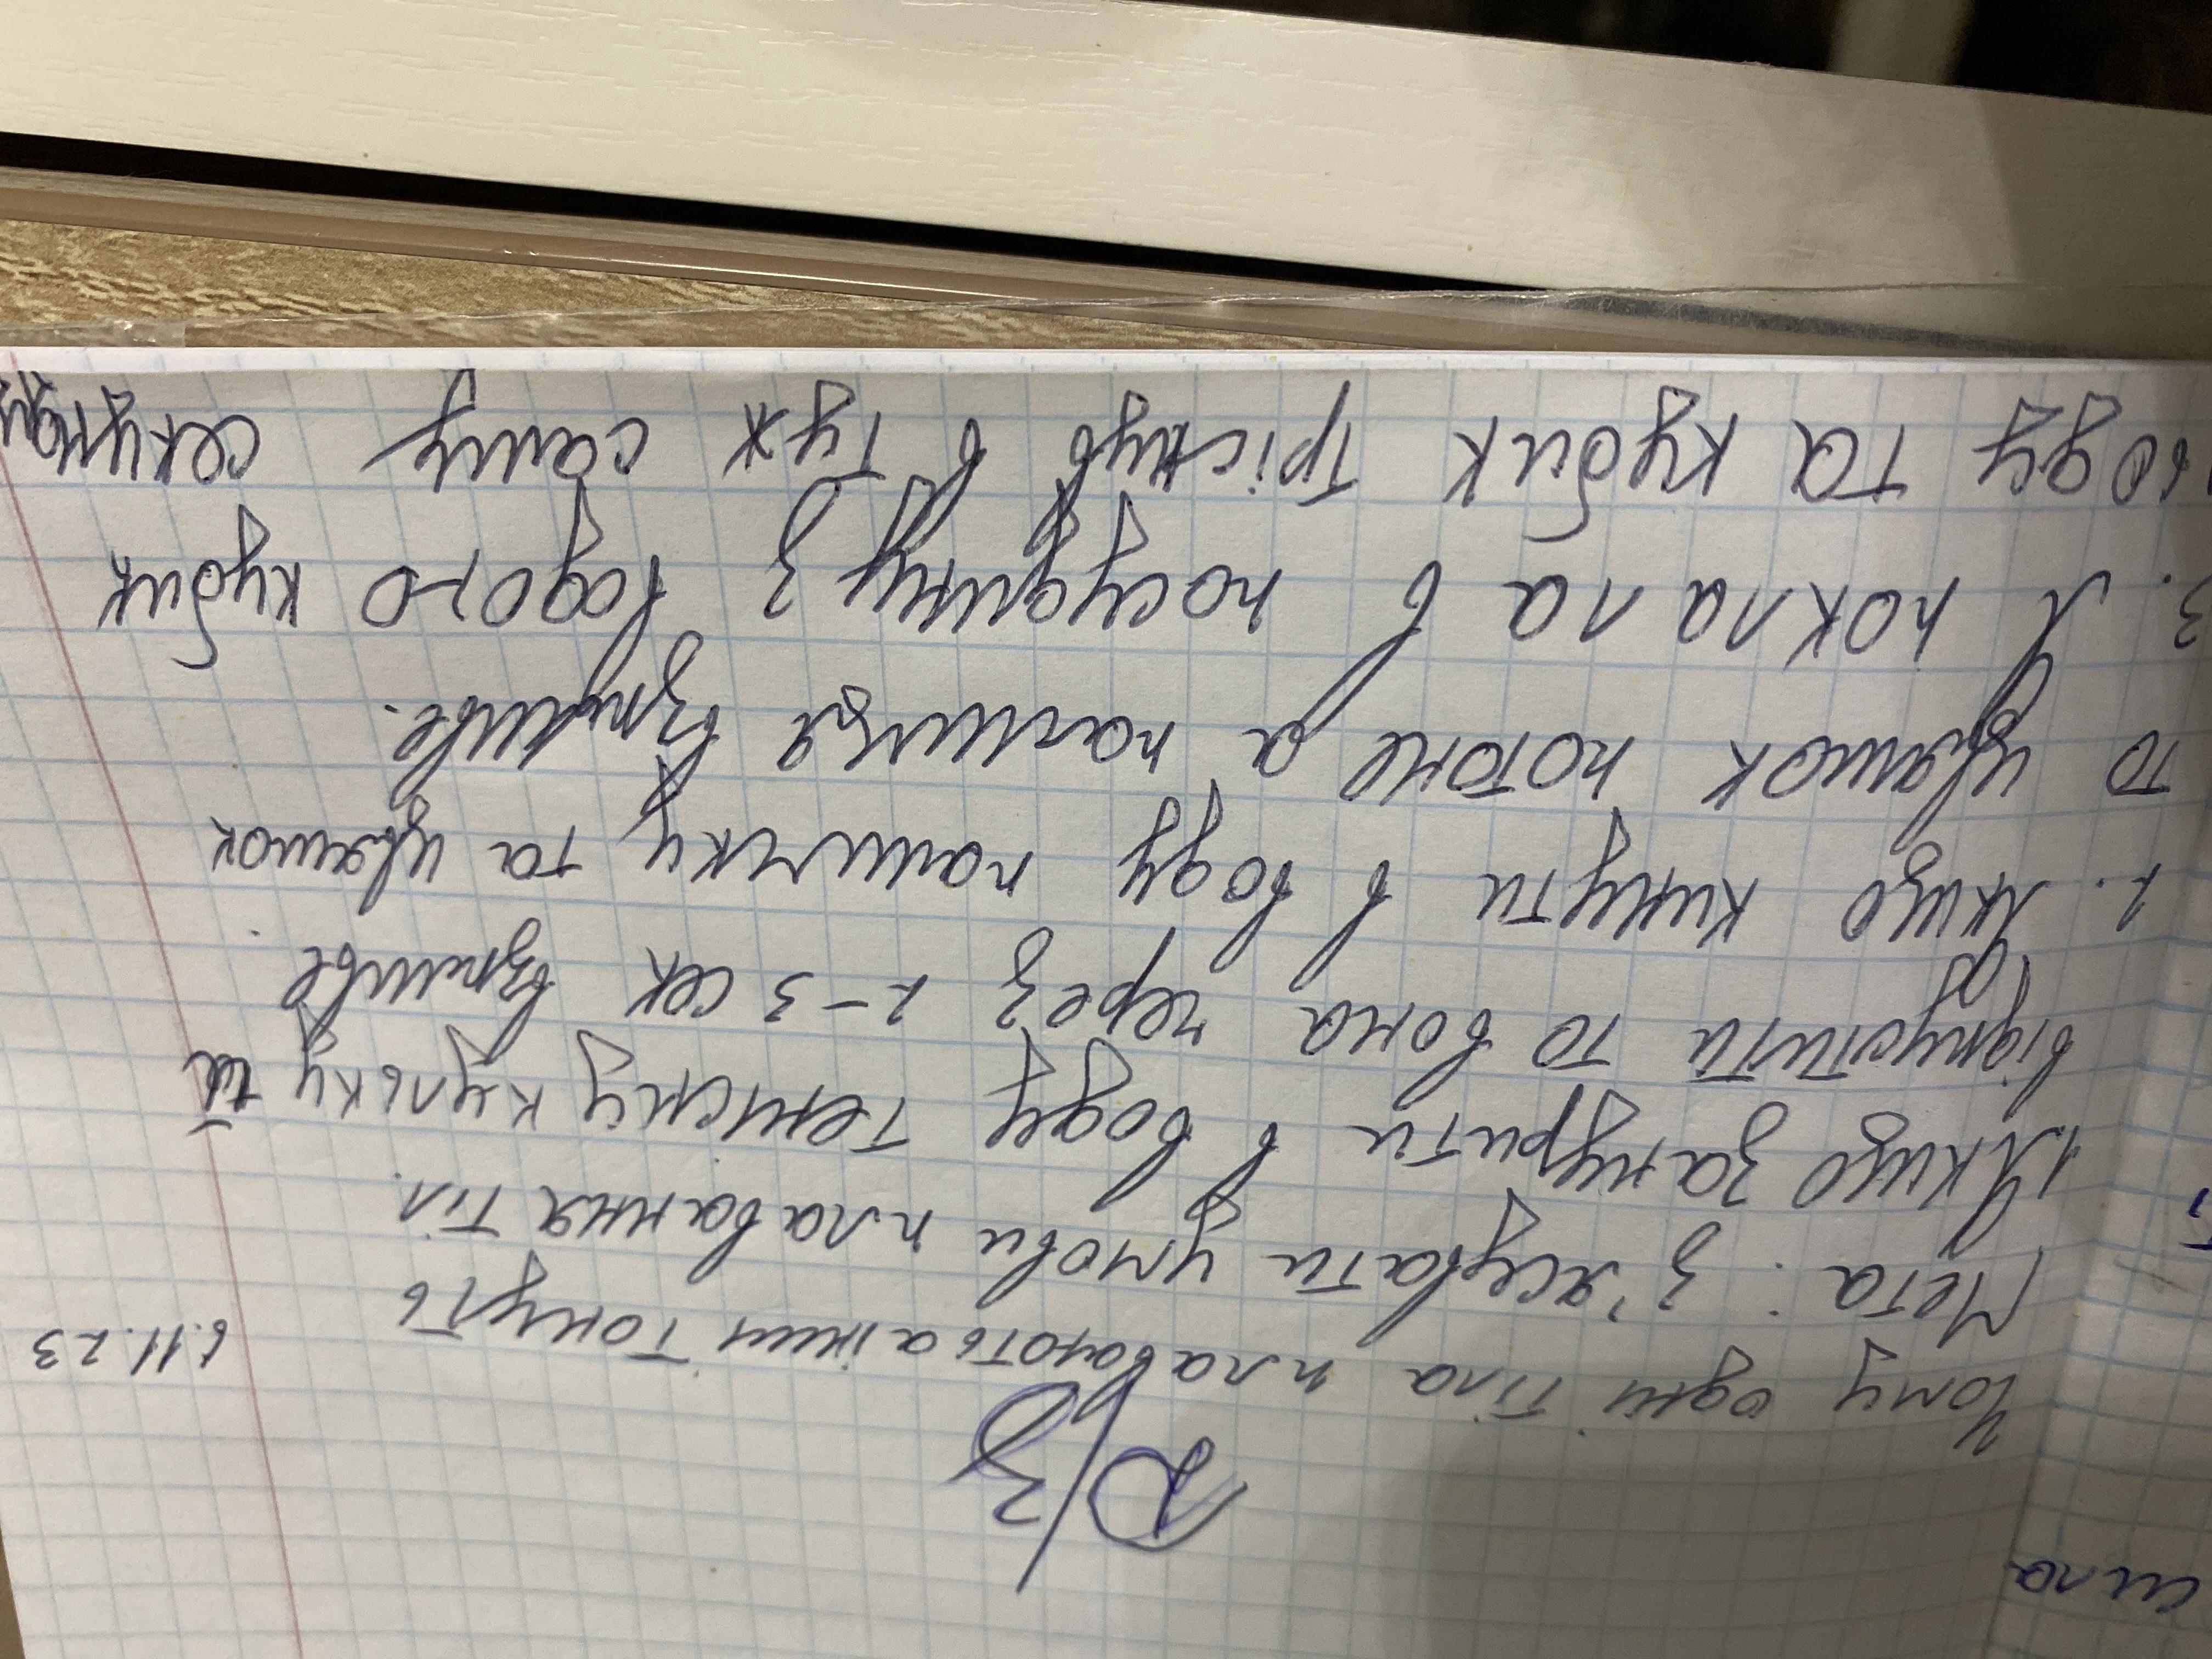 Д/З
6.11.23
Чому одні тіла плавають а інші тонуть
Мета: З'ясувати умови плавання тіл.
1. Якщо занурити в воду тенісну кульку та
відпустити то вона через 2-3 сек взпливе.
2. Якщо кинути в воду паличку та цвяшок
то цвяшок потоне а паличка взпливе.
3. Я поклала в посудину з водою кубик
льоду та кубик тріснув в туж саму секунду
сила